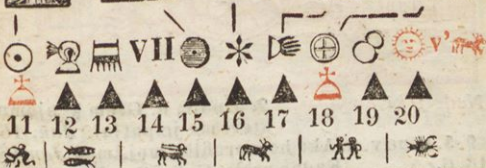 VII V'
11 12 13 14 15 16 17 18 19 20